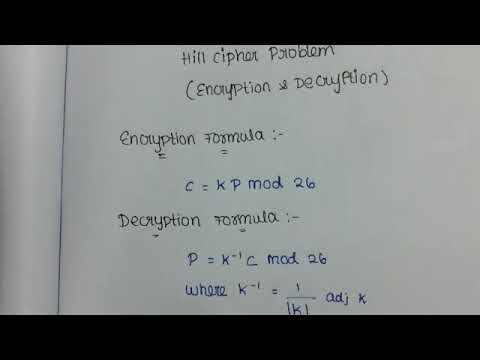 Hill Cipher Problem
(Encryption & Decryption)
Encryption Formula :-
C = K P mod 26
Decryption Formula :-
P = K⁻¹ C mod 26
where K⁻¹ = 1/|K| adj K